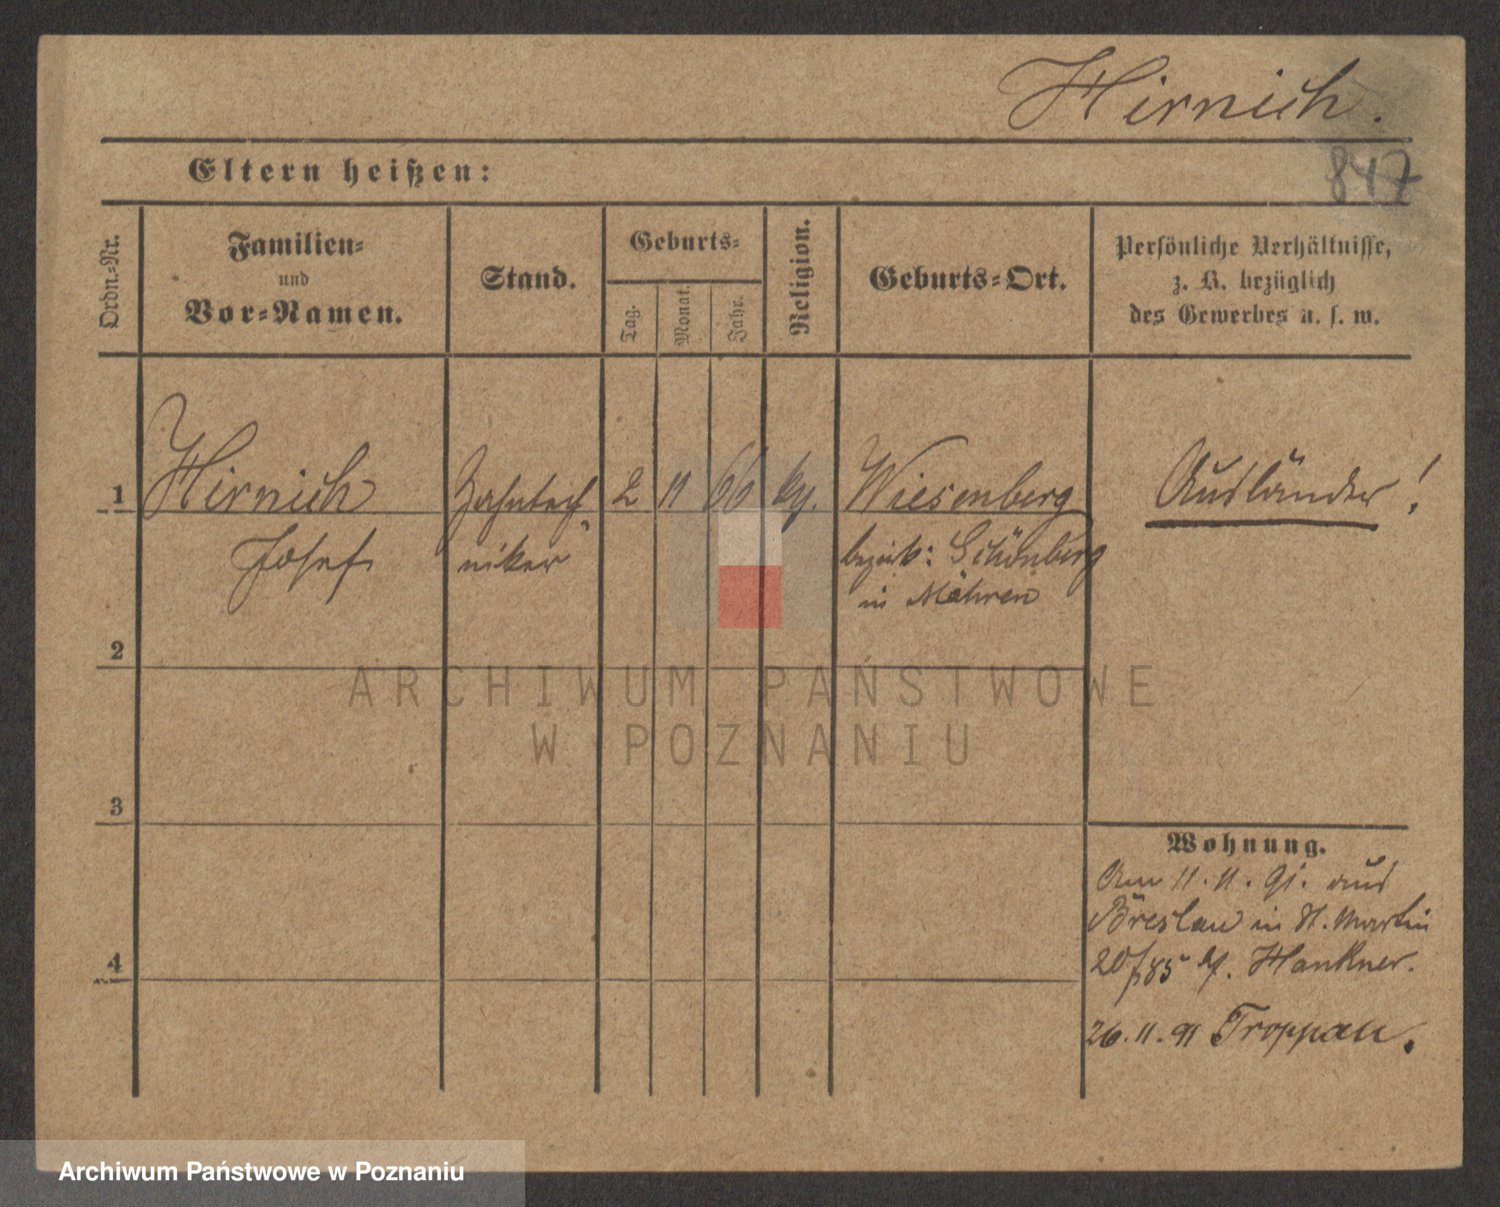 Hirnich.
847
Eltern heißen:
Ordn.-Nr.
Familien-
und
Vor-Namen.
Stand.
Geburts-
Tag.
Monat.
Jahr.
Religion.
Geburts-Ort.
Persönliche Verhältnisse,
z. B. bezüglich
des Gewerbes u. s. w.
1 Hirnich Zahntech 2 11 66 Wiesenberg Ausländer!
Josef niker bezirk: Schönberg
in Mähren
2
3
4
Wohnung.
Am 11.11.91. aus
Breslau in St. Martin
20/ 85 Hankner.
26.11.91 Troppau.
ARCHIWUM PAŃSTWOWE
W POZNANIU
Archiwum Państwowe w Poznaniu